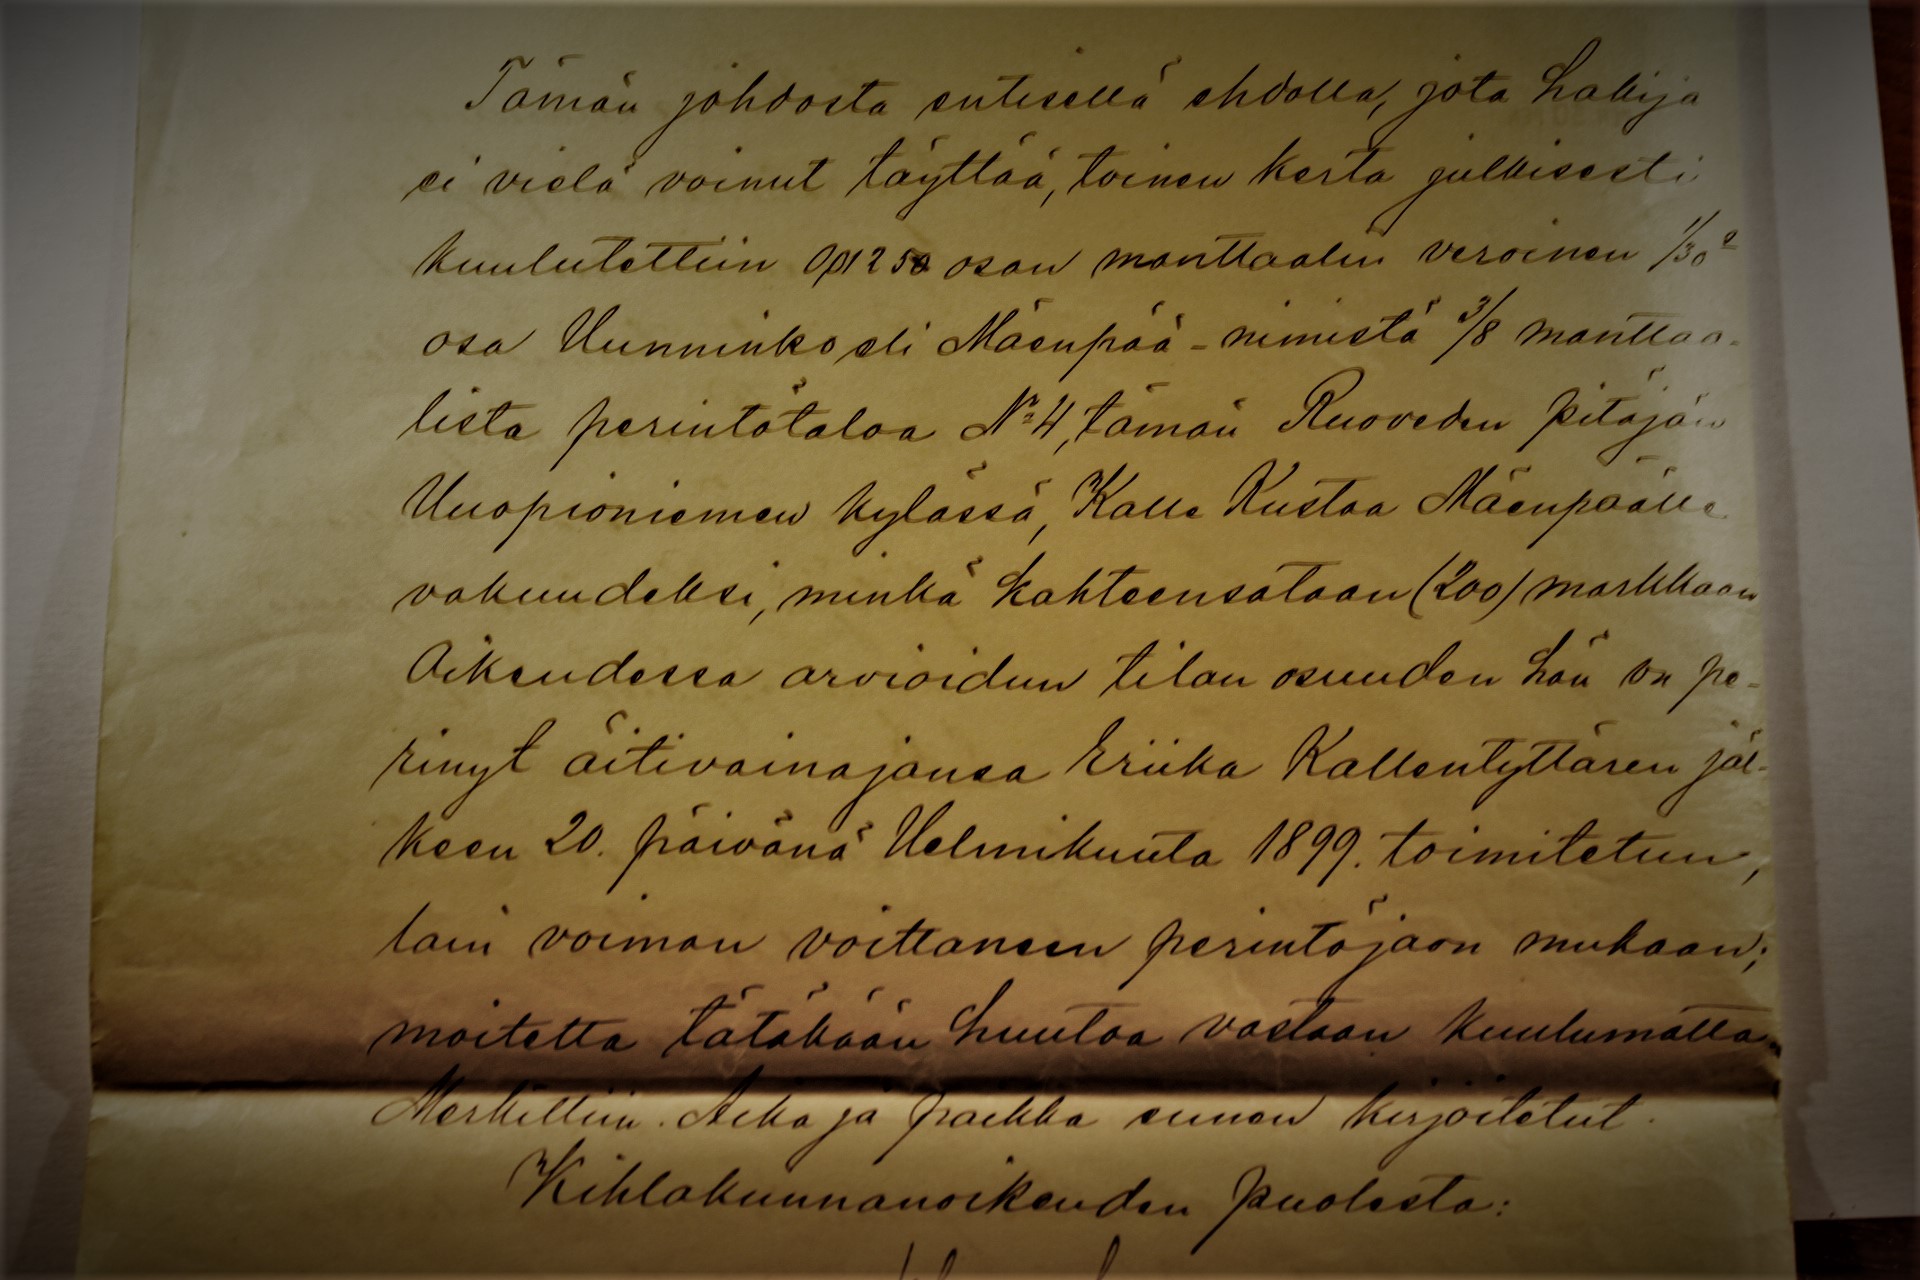 Tämän johdosta entisellä ehdolla, jota hakija
ei vielä voinut täyttää, toinen kerta julkisesti
kuulutettiin 0,01250 osan manttaalin veroinen 1/30
osa Uunninko eli Mäenpää-nimistä 3/8 manttaa-
lista perintötaloa No 4, tämän Ruoveden pitäjän
Vuopioniemen kylässä, Kalle Kustaa Mäenpäälle
vakuudeksi, minkä kahteensataan (200) markkaan
Oikeudessa arvioidun tilan osuuden hän on pe-
rinyt äitivainajansa Eriika Kallentyttären jäl-
keen 20. päivänä Helmikuuta 1899. toimitetun,
lain voiman voittaneen perintöjaon mukaan;
moitetta tätäkään huutoa vastaan kuulumatta.
Merkittiin. Aika ja paikka ennen kirjoitetut.
Kihlakunnanoikeuden puolesta: